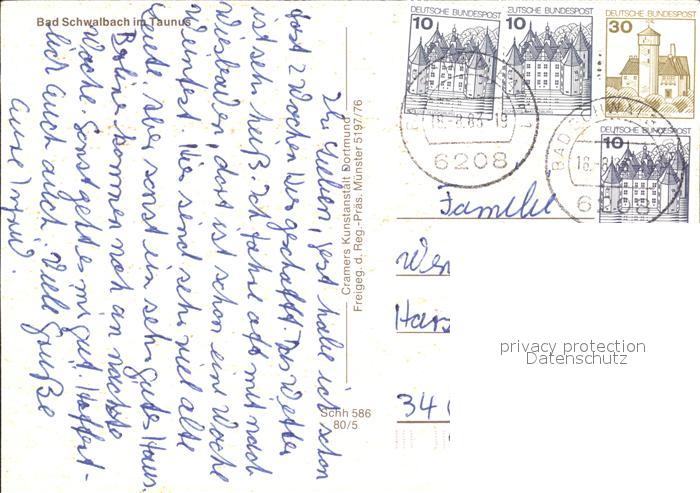 Bad Schwalbach im Taunus
Ihr Lieben, jest habe ich schon
fast 2 Wochen geschafft. Das Wetter
ist sehr heiß. Ich fahre oft mit nach
Wiesbaden, dort ist schon eine Woche
Weinfest. Hier sind sehr viel alte
Leute. Aber sonst ein sehr gutes Haus.
kommen noch an nächste
Woche. Sonst geht es mir gut. Hoffent-
lich auch auch. Viele Grüße
Eure
Cramers Kunstanstalt Dortmund
Freigeg. d. Reg.-Präs. Münster 5197/76
Schh 586
80/5
DEUTSCHE BUNDESPOST
10
DEUTSCHE BUNDESPOST
10
DEUTSCHE BUNDESPOST
30
10
18.-8.83-19
6208
BAD SCHWALBACH
18.-8.
6208
Familie
Wer
Han
34
privacy protection
Datenschutz